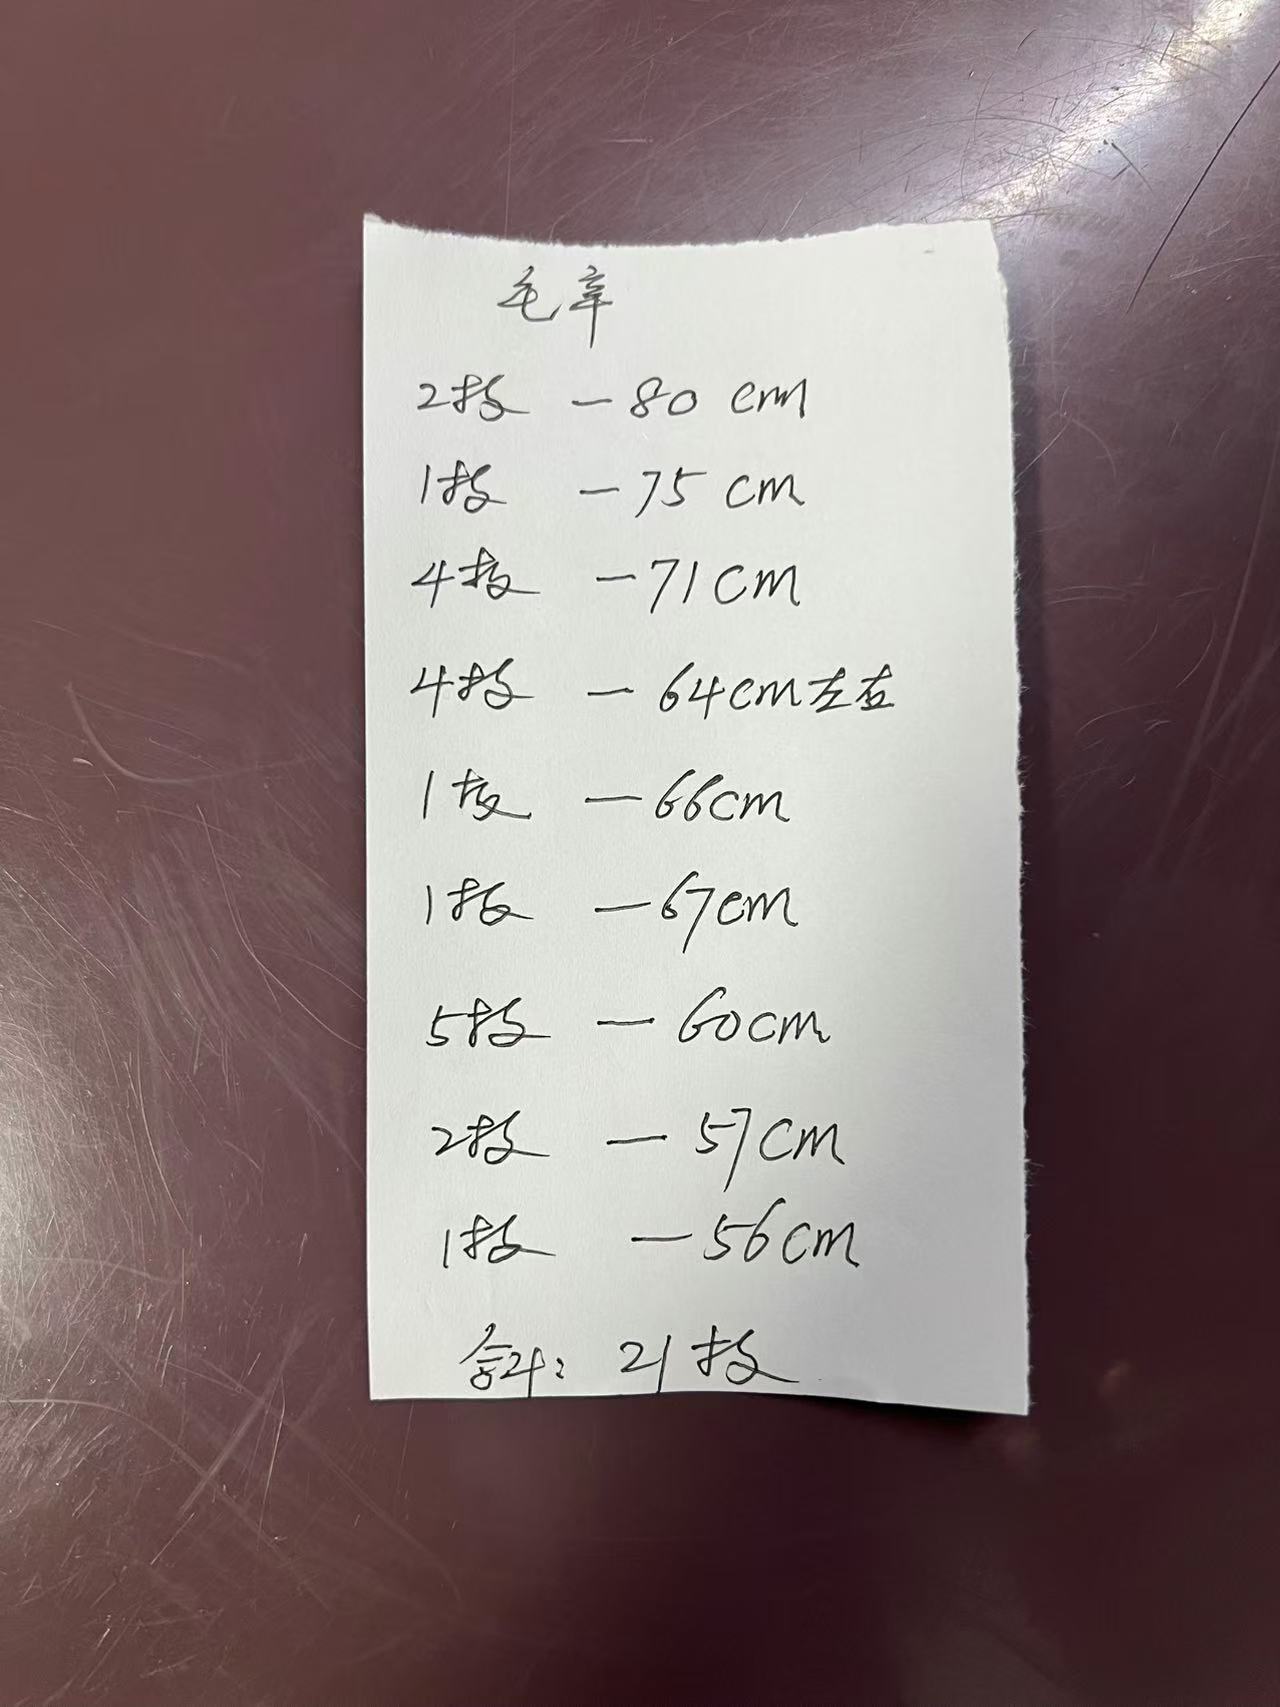 毛辛
2枝 - 80 cm
1枝 - 75 cm
4枝 - 71cm
4枝 - 64cm左右
1枝 - 66cm
1枝 - 67cm
5枝 - 60cm
2枝 - 57cm
1枝 - 56cm
合计: 21枝